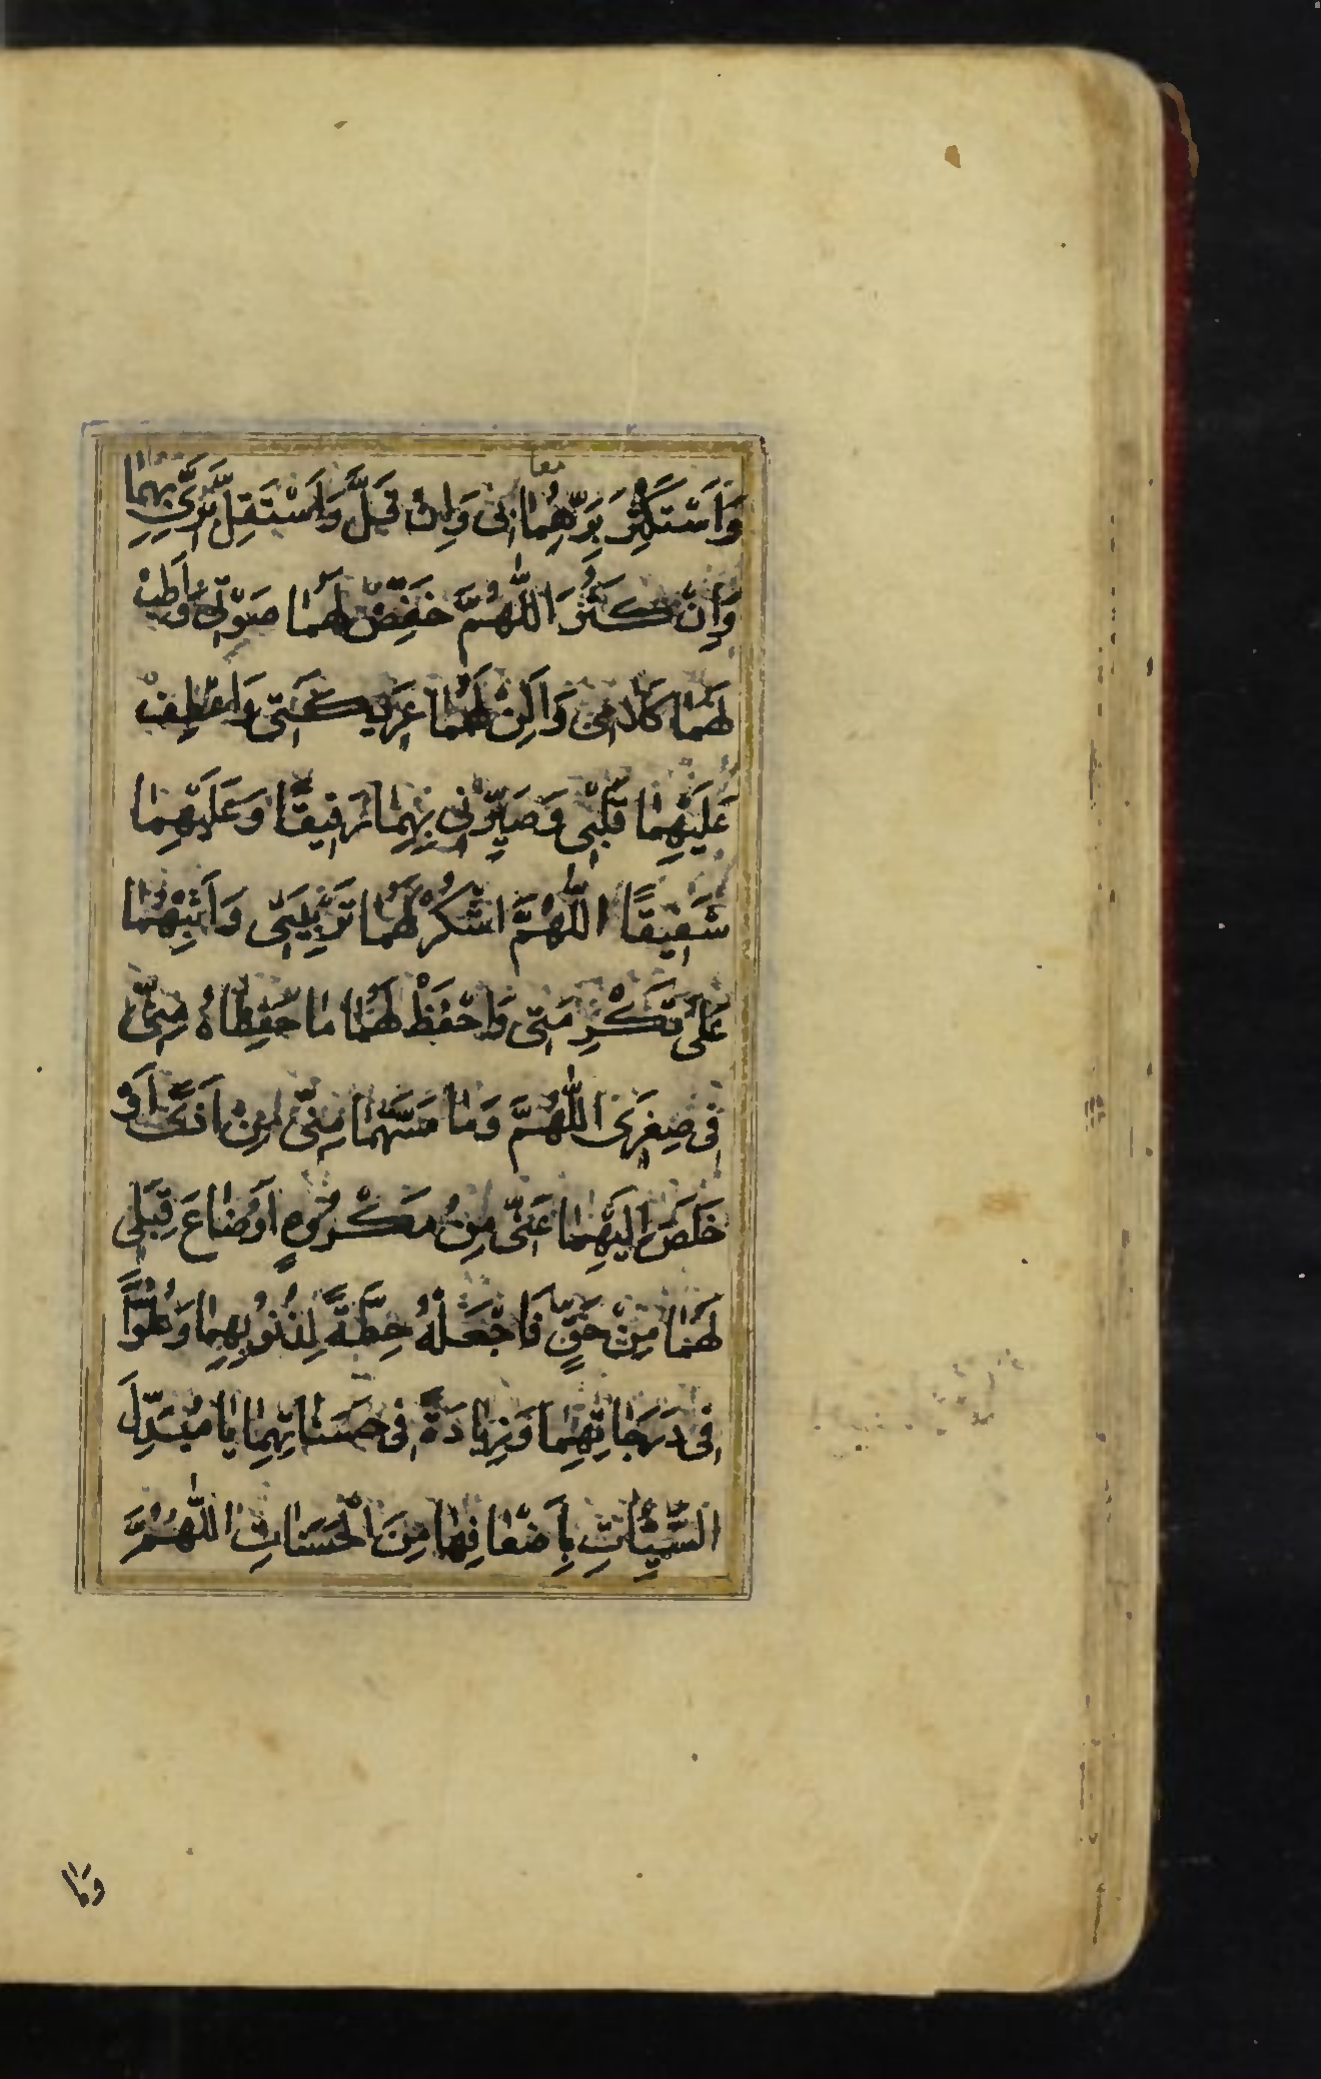 وَاَسْتَكْثِرَ بِرَّهُمٰا بى وَاِنْ قَلَّ وَاَسْتَقِلَّ بِرّى بِهِمٰا
وَاِنْ كَثُرَ اَللّٰهُمَّ خَفِّضْ لَهُمٰا صَوْتى وَاَطِبْ
لَهُمٰا كَلامى وَاَلِنْ لَهُمٰا عَريكَتى وَاعْطِفْ
عَلَيْهِمٰا قَلْبى وَصَيِّرْنى بِهِمٰا رَفيقًا وَعَلَيْهِمٰا
شَفيقًا اَللّٰهُمَّ اشْكُرْ لَهُمٰا تَرْبِيَتى وَاَثِبْهُمٰا
عَلىٰ تَكْرِمَتى وَاحْفَظْ لَهُمٰا مٰا حَفِظٰاهُ مِنّى
فى صِغَرى اَللّٰهُمَّ وَمٰا مَسَّهُمٰا مِنّى مِنْ اَذىً اَوْ
خَلَصَ اِلَيْهِمٰا عَنّى مِنْ مَكْرُوهٍ اَوْ ضٰاعَ قِبَلى
لَهُمٰا مِنْ حَقٍّ فَاجْعَلْهُ حِطَّةً لِذُنُوبِهِمٰا وَعُلُوًّا
فى دَرَجٰاتِهِمٰا وَزِيٰادَةً فى حَسَنٰاتِهِمٰا يٰا مُبَدِّلَ
السَّيِّئٰاتِ بِاَضْعٰافِهٰا مِنَ الْحَسَنٰاتِ اَللّٰهُمَّ
وَمٰا